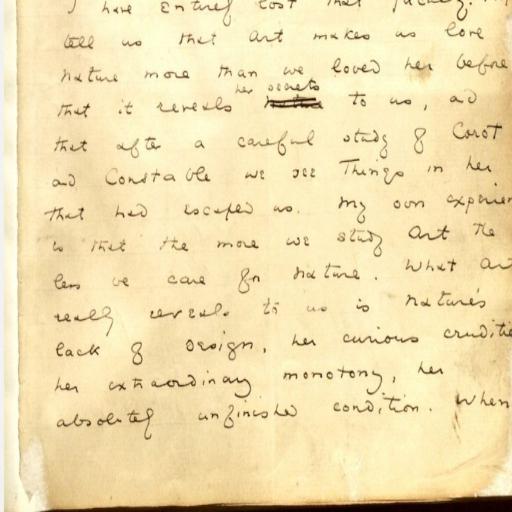 I have entirely lost that faculty.
tell us that Art makes us love
Nature more than we loved her before
her secrets
that it reveals to us, and
that after a careful study of Corot
and Constable we see Things in her
that had escaped us. My own experien
is that the more we study Art the
less we care for Nature. What Art
really reveals to us is Nature's
lack of design, her curious cruditie
her extraordinary monotony, her
absolutely unfinished condition. When